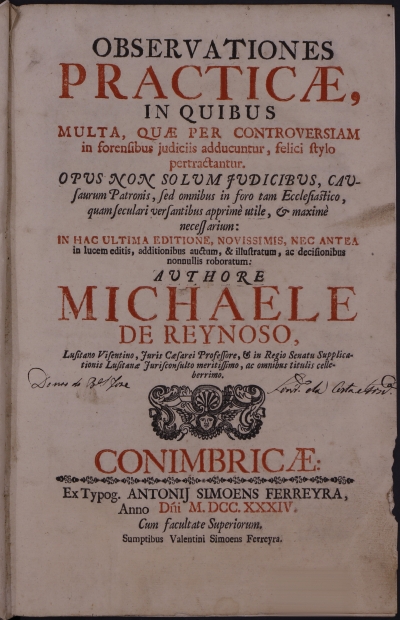 OBSERVATIONES
PRACTICÆ,
IN QUIBUS
MULTA, QUÆ PER CONTROVERSIAM
in forensibus judiciis adducuntur, felici stylo
pertractantur.
OPUS NON SOLUM JUDICIBUS, CAU-
saurum Patronis, sed omnibus in foro tam Ecclesiastico,
quam seculari versantibus apprimè utile, & maximè
necessarium:
IN HAC ULTIMA EDITIONE, NOVISSIMIS, NEC ANTEA
in lucem editis, additionibus auctum, & illustratum, ac decisionibus
nonnullis roboratum:
AUTHORE
MICHAELE
DE REYNOSO,
Lusitano Visentino, Juris Cæsarei Professore, & in Regio Senatu Supplica-
tionis Lusitanæ Jurisconsulto meritissimo, ac omnibus titulis cele-
berrimo.
CONIMBRICÆ:
Ex Typog. ANTONIJ SIMOENS FERREYRA,
Anno Dñi M. DCC. XXXIV.
Cum facultate Superiorum.
Sumptibus Valentini Simoens Ferreyra.